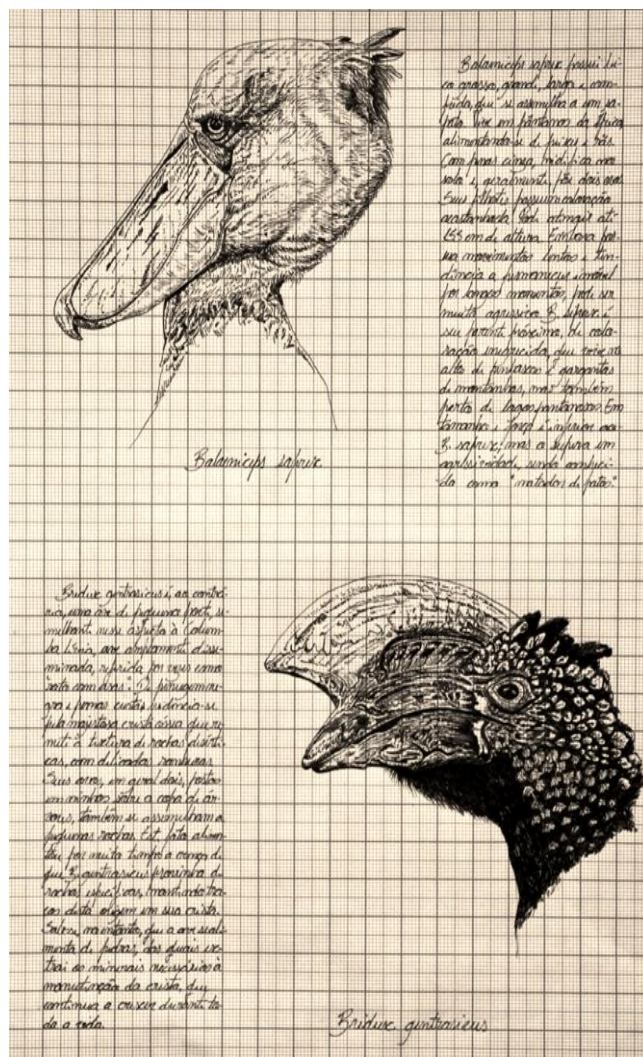 Balaniceps saprex possui bi-
co grosso, grande, largo e com-
prido, que se assemelha a um sa-
pato. Vive em pântanos da África
alimentando-se de peixes e rãs.
Com penas cinza, nidifica no
solo e, geralmente, põe dois ovos.
Seus filhotes possuem coloração
acastanhada. Pode atingir até
153 cm de altura. Embora pos-
sua movimentos lentos e ten-
dência a permanecer imóvel
por longos momentos, pode ser
muito agressivo. B. é
seu parente próximo, de colo-
ração enegrecida, que vive no
alto de penhascos e gargantas
de montanhas, mas também
perto de lagos pantanosos. Em
tamanho e força é inferior ao
B. saprex, mas o supera em
sendo conheci-
do como "matador de patos".
Balaniceps saprex
Bridux gentrasicus é, ao contrá-
rio, uma ave de pequeno porte, se-
melhante nesse aspecto à Colum-
ba livia, ave amplamente disse-
minada, referida por vezes como
"rato com asas". De penugem ne-
gra e penas curtas evidencia-se
pela majestosa crista óssea que re-
mete à textura de rochas
com delicadas ranhuras.
Seus ovos, em geral dois, postos
em ninhos sobre a copa de ár-
vores, também se assemelham a
pequenas rochas. Este fato alimen-
tou por muito tempo a crença de
que B. gentrasicus proviinha de
rochas específicas, mantendo tra-
ços desta origem em sua crista.
Sabe-se, no entanto, que a ave se ali-
menta de pedras, das quais ex-
trai os minerais necessários à
manutenção da crista, que
continua a crescer durante to-
da a vida.
Bridux gentrasicus